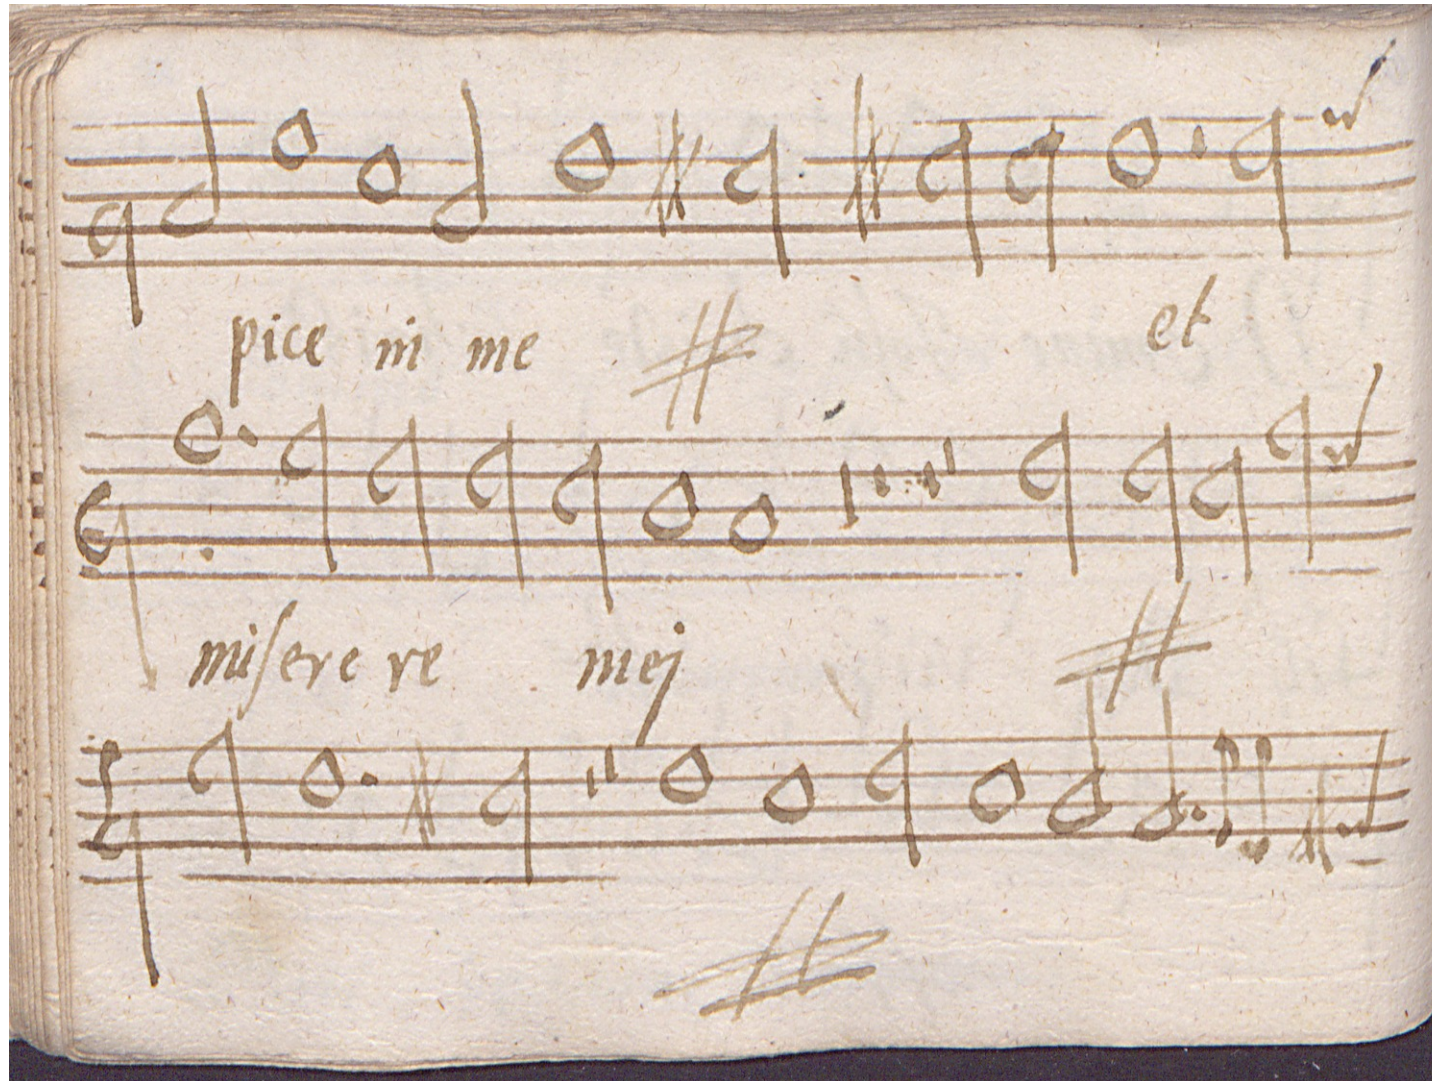 pice in me et
miserere mei